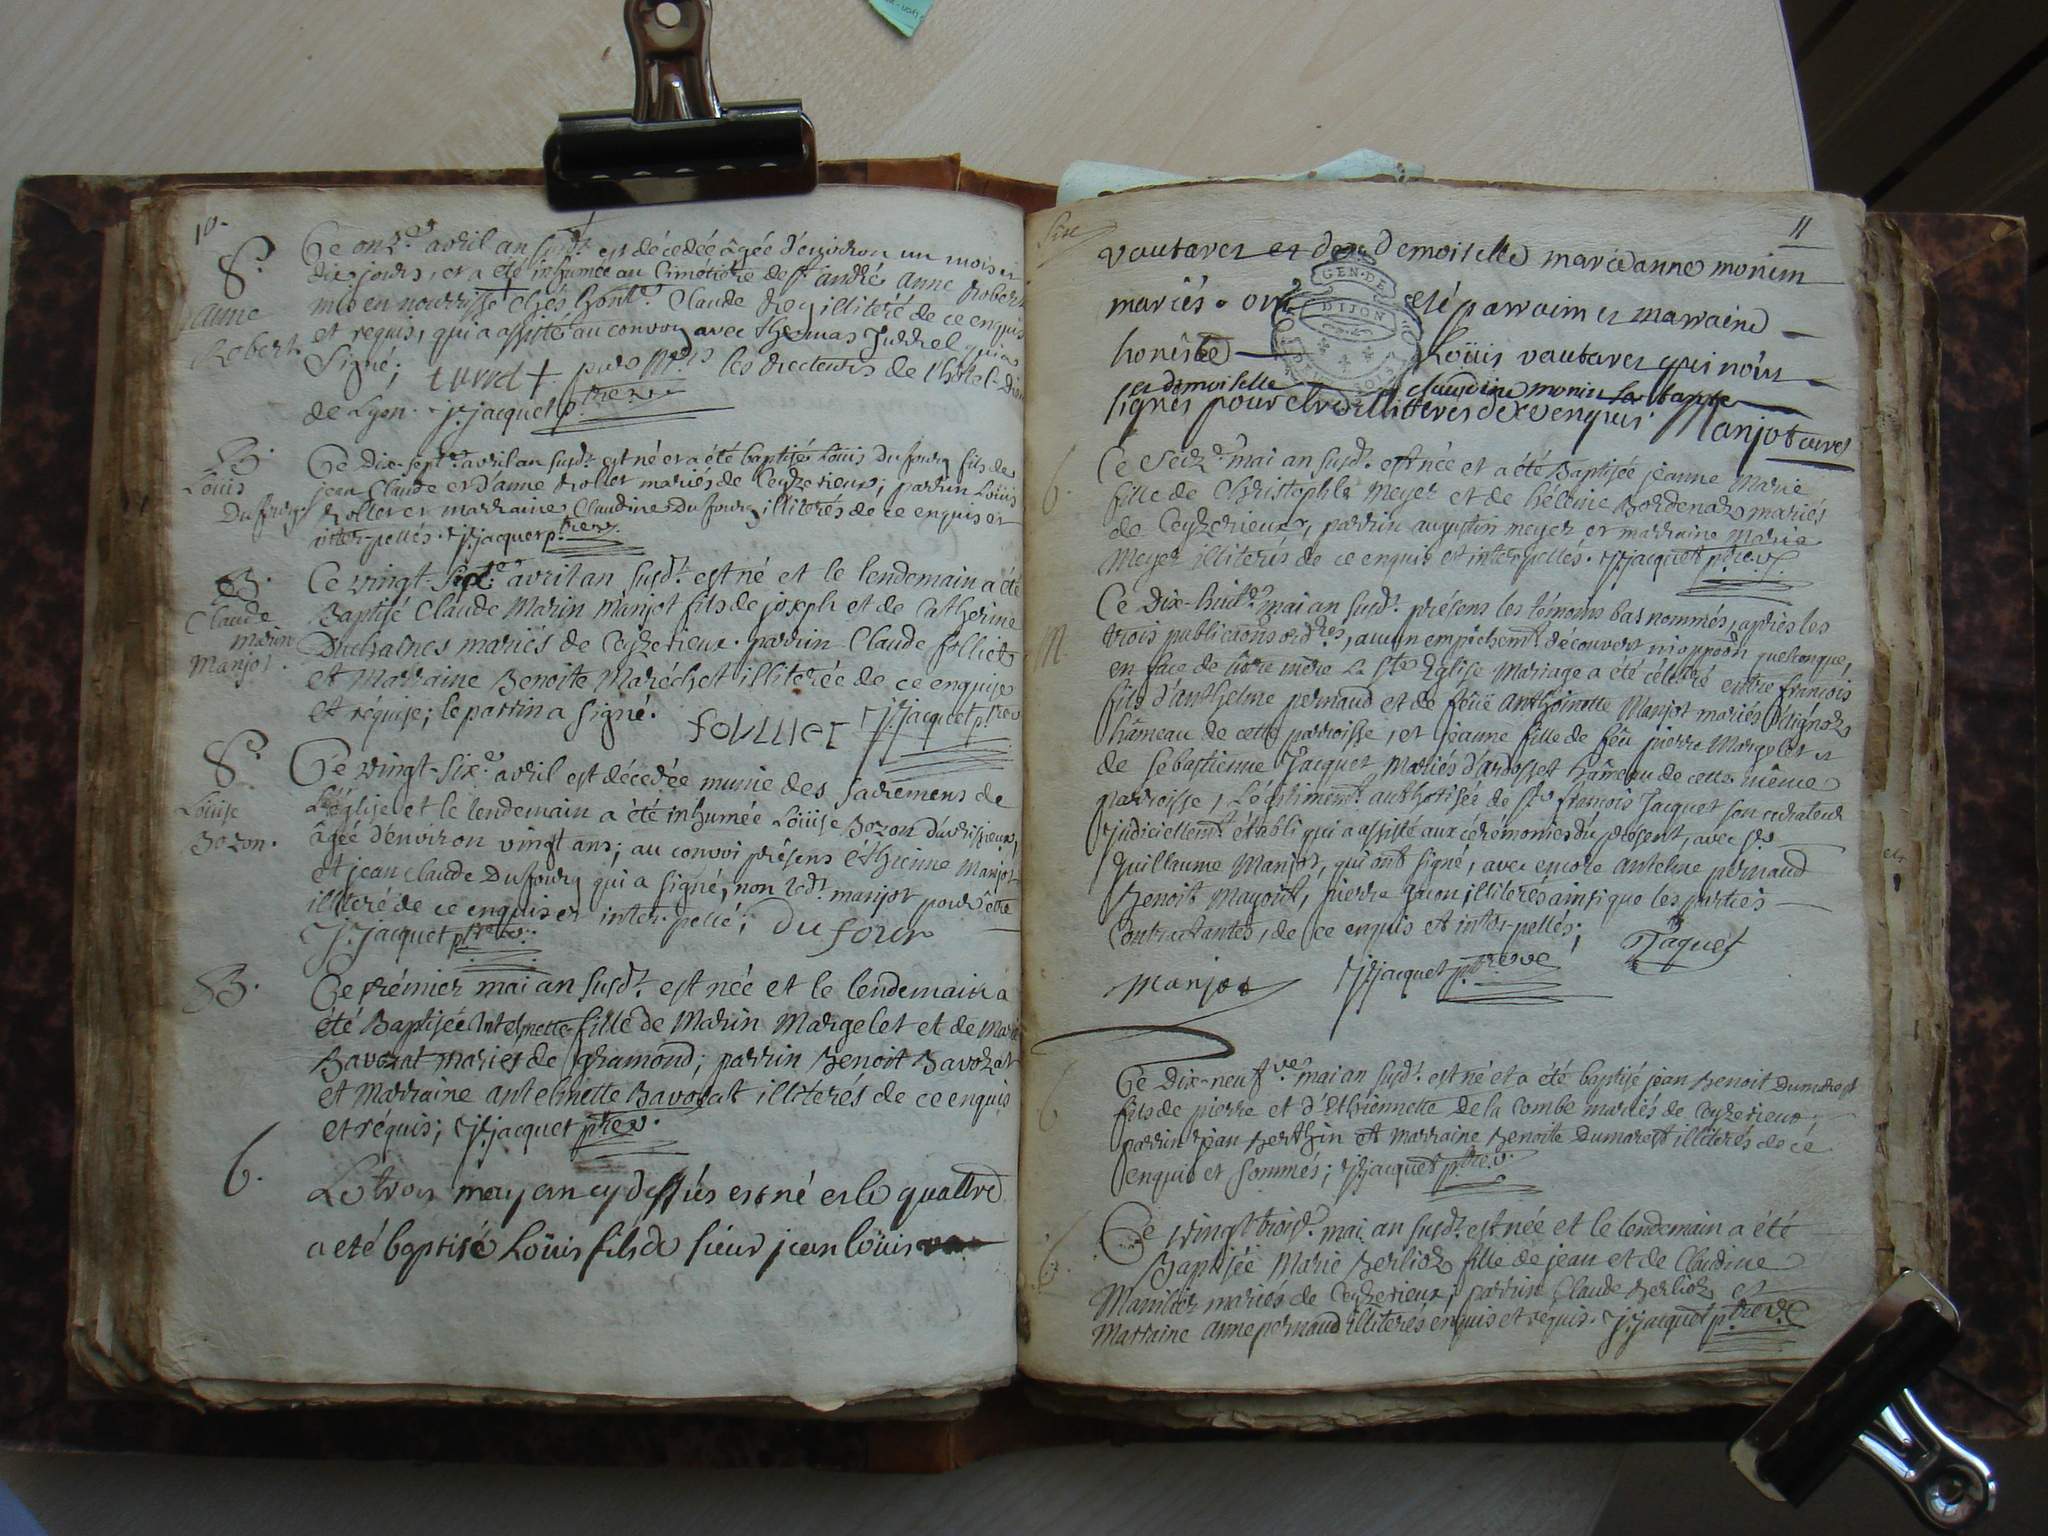 10.
S.re
anne
Robert
Ce onz.e avril an susd.t est décédée âgée d'environ un mois et
dix jours, et a été inhumée au Cimetiere de s.t andré anne Robert
mis en nourrisse chés hont.e Claude Rey illiteré de ce enquis
et requis, qui a assisté au convoy avec thomas Jurrel qui a
signé; + par M.rs les recteurs de l'hôtel-Dieu
de Lyon. J.jacquet p.tre v.
B.
Loüis
Dufour
Ce Dix-sept.e avril an susd.t est né et a été baptisé Loüis Dufour fils de
jean Claude et d'anne Rollet mariés de Ceyzerieux; parrin Loüis
Rollet et marraine Claudine Dufour illiterés de ce enquis et
inter-pellés. J.jacquet p.tre v.
B.
Claude
marin
Manjot.
Ce vingt- avril an susd.t est né et le lendemain a été
Baptisé Claude Marin Manjot fils de joseph et de Catherine
Duchaînes mariés de Ceyzerieux. parrin Claude folliet
et Marraine Benoite Maréchet illiterée de ce enquise
et requise; le parrin a signé. J.jacquet p.tre v.
S.re
Loüise
Bozon.
Ce vingt-six.e avril est décedée munie des sacremens de
L'église et le lendemain a été inhumée Loüise Bozon d'avrissieux,
âgée d'environ vingt ans; au convoi présens éthienne Manjot
et jean claude Dufour qui a signé, non led.t manjot pour être
illiteré de ce enquis et inter-pellé; Dufour
J.jacquet p.tre v.
B.
Ce prémier mai an susd.t est née et le lendemain a
été Baptisée Antelmette fille de Marin Margelet et de Marie
Bavozat mariés de gramond; parrin Benoit Bavozat
et Marraine antelmette Bavozat illiterés de ce enquis
et réquis; J.jacquet p.tre v.
b.
Le trois may an cy dessus est né et le quattre
a eté baptisé Loüis fils de sieur jean loüis
11
vautaret et de demoiselle marie anne monin
mariés. ont eté parrain et marraine
honéste Loüis vautaret qui n'ont
et demoiselle claudine monin sa tante
signés pour etre illitteres de ce enquis. Manjot curé
b.
Ce seiz.e mai an susd.t est née et a été Baptisée jeanne Marie
fille de Christophle Meyer et de héleine Bordenaz mariés
de Ceyzerieux, parrin augustin meyer et marraine Marie
Meyer illiterés de ce enquis et inter-pellés. J.jacquet p.tre v.
M.
Ce Dix-huit.e mai an susd.t présens les témoins bas nommés, après les
trois publications ord.res, aucun empêchem.t découvert ni oppoôn quelconque,
en face de nôtre mère La s.te Eglise Mariage a été célébré entre françois
fils d'anthelme pernaud et de feüe anthoinette Manjot mariés d'étignoz
hâmeau de cette parroisse, et jeanne fille de feu pierre Margelet et
de sébastienne Jacquet mariés d'ardosset hâmeau de cette même
parroisse, Légitimem.t authorisée de s.r françois Jacquet son curateur
judiciellem.t établi qui a assisté aux cérémonies du présent, avec s.r
Guillaume Manjot, qui ont signé, avec encore antelme pernaud
Benoit Mayoüt, pierre illiterés ainsi que les parties
Contractantes, de ce enquis et inter-pellés;
Manjot J.jacquet p.tre v.e Jaquet
b
Ce Dix-neufv.e mai an susd.t est né et a été baptisé jean Benoit Dumarest
fils de pierre et d'Ethiennette De la Combe mariés de Ceyzerieux;
parrin jean Berthin et Marraine Benoite Dumarest illiterés de cé
enquis et sommés; J.jacquet p.tre v.
b.
Ce vingt trois.e mai an susd.t est née et le lendemain a été
Baptisée Marie Berlioz fille de jean et de Claudine
Manilier mariés de Ceyzerieux; parrin Claude Berlioz et
Marraine anne pernaud illiterés enquis et réquis. J.jacquet p.tre v.e